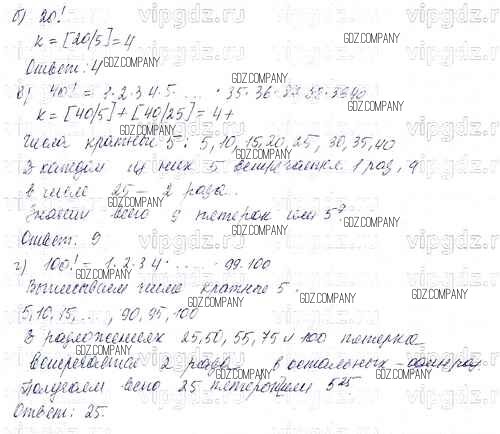 б) 20!
k = [20/5] = 4
Ответ: 4
в) 40! = 1·2·3 4·5· ... · 35·36· 39 40
k = [40/5] + [40/25] = 4+
числа кратные 5: 5, 10, 15, 20, 25, 30, 35, 40
В каждом из них 5 встречается 1 раз, а
в числе 25 – 2 раза.
Значит всего 9 пятерок или 5⁹
Ответ: 9
г) 100! = 1·2·3 4· ... · 99·100
Выписываем числа кратные 5.
5, 10, 15, ..., 90, 95, 100
В разложениях 25, 50, 55, 75 и 100 пятерка
встречается 2 раза в остальных – один раз
Получаем всего 25 пятерок 5²⁵
Ответ: 25.
GDZ.COMPANY
vipgdz.ru